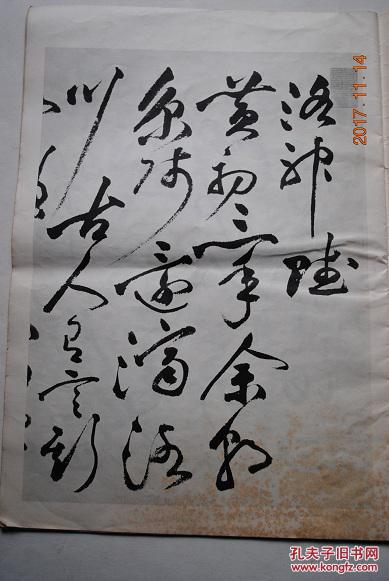 洛神赋
黄初三年余朝
京师还济洛
川古人有言斯
2017.11.14
孔夫子旧书网
www.kongfz.com